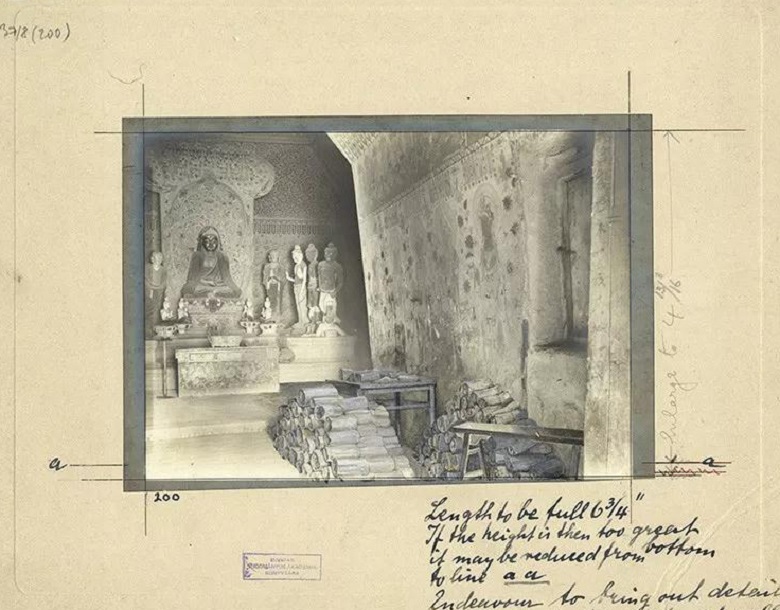 37/8 (200)
enlarge to 4 13/16
a
a
200
Length to be full 6 3/4"
If the height is then too great
it may be reduced from bottom
to line a a
Endeavour to bring out detail